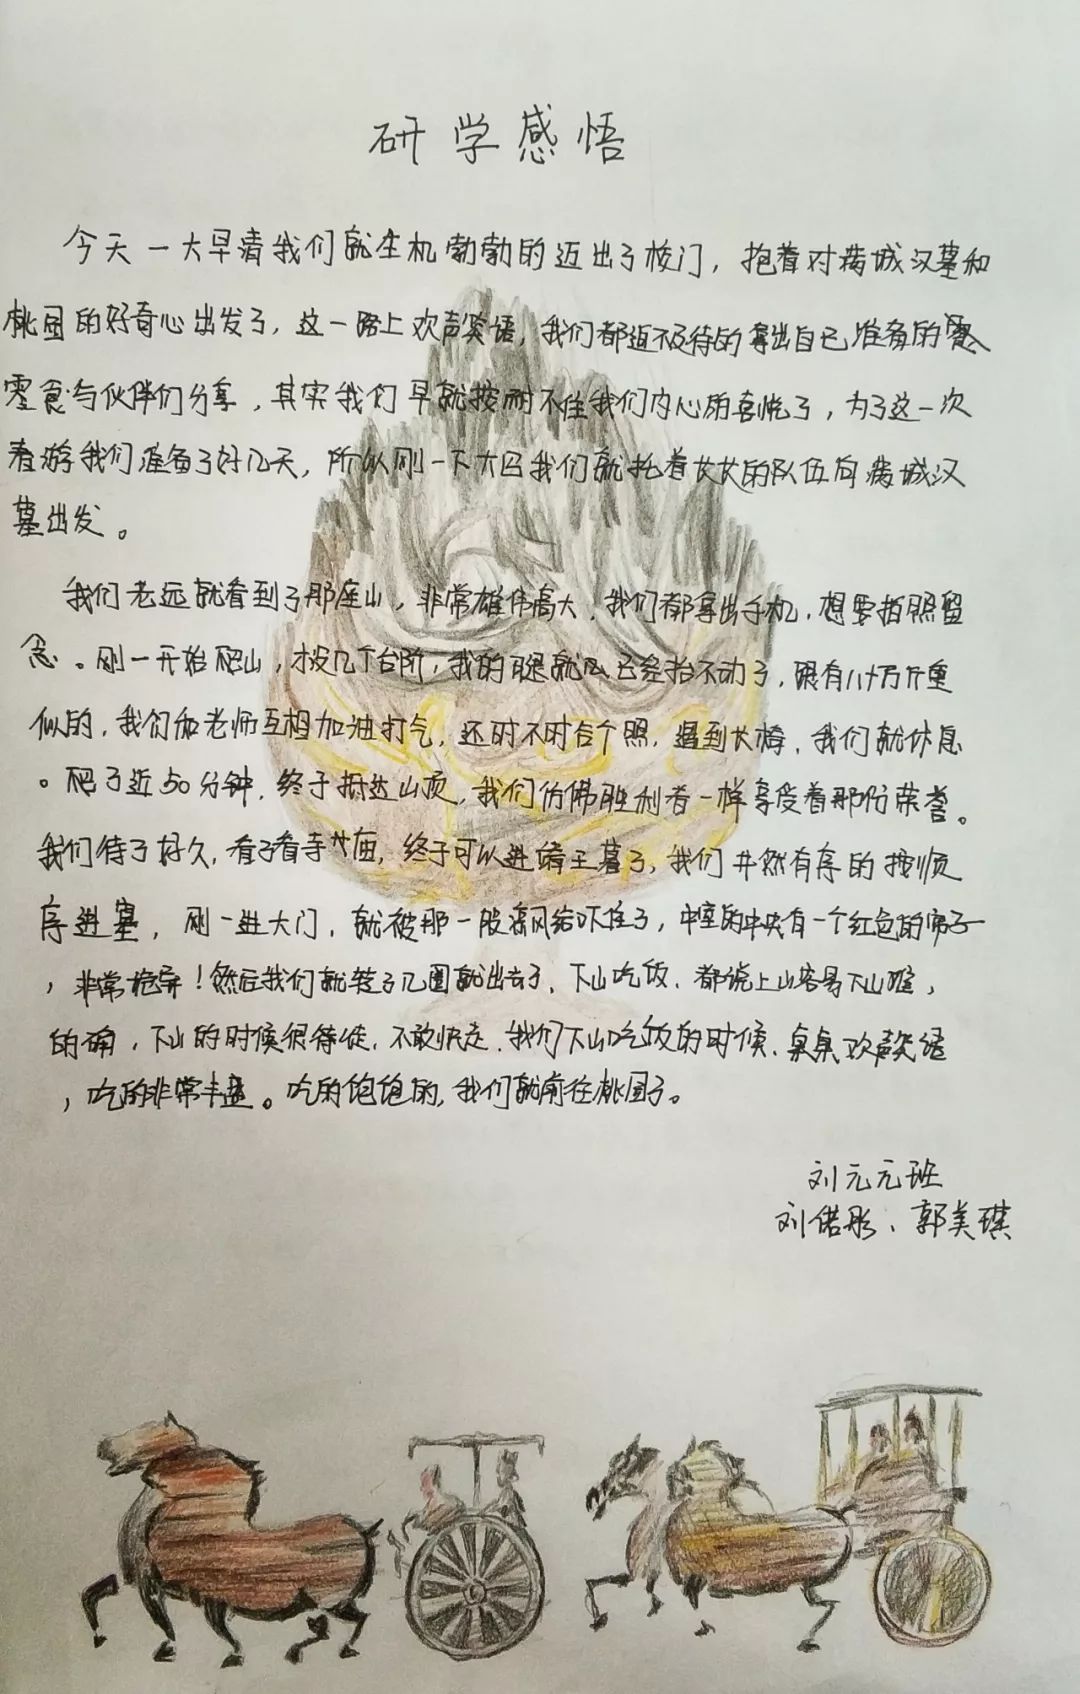 研学感悟
今天一大早清我们就生机勃勃的迈出了校门，抱着对满城汉墓和
桃园的好奇心出发了，这一路上欢声笑语，我们都迫不及待的拿出自己准备的
零食与伙伴们分享，其实我们早就按耐不住我们内心的喜悦了，为了这一次
春游我们准备了好几天，所以刚一下大巴我们就托着女女的队伍向满城汉
墓出发。
我们老远就看到了那座山，非常雄伟高大，我们都拿出手机，想要拍照留
念。刚一开始爬山，才没几个台阶，我的腿就已经抬不动了，跟有八十万斤重
似的，我们和老师互相加油打气，还时不时合个照，遇到长椅，我们就休息
。爬了近50分钟，终于抵达山顶，我们仿佛胜利者一样享受着那份荣誉。
我们待了好久，看了看寺庙，终于可以进靖王墓了，我们井然有序的按顺
序进墓，刚一进大门，就被那一股凉风给吓住了，中室的中央有一个红色的帘子
，非常诡异！然后我们就转了几圈就出去了，下山吃饭，都说上山容易下山难，
的确，下山的时候很待徒，不敢快走，我们下山吃饭的时候，桌桌欢声笑语
，吃的非常丰盛。吃的饱饱的，我们就前往桃园了。
刘元元班
刘偌彤、郭美琪